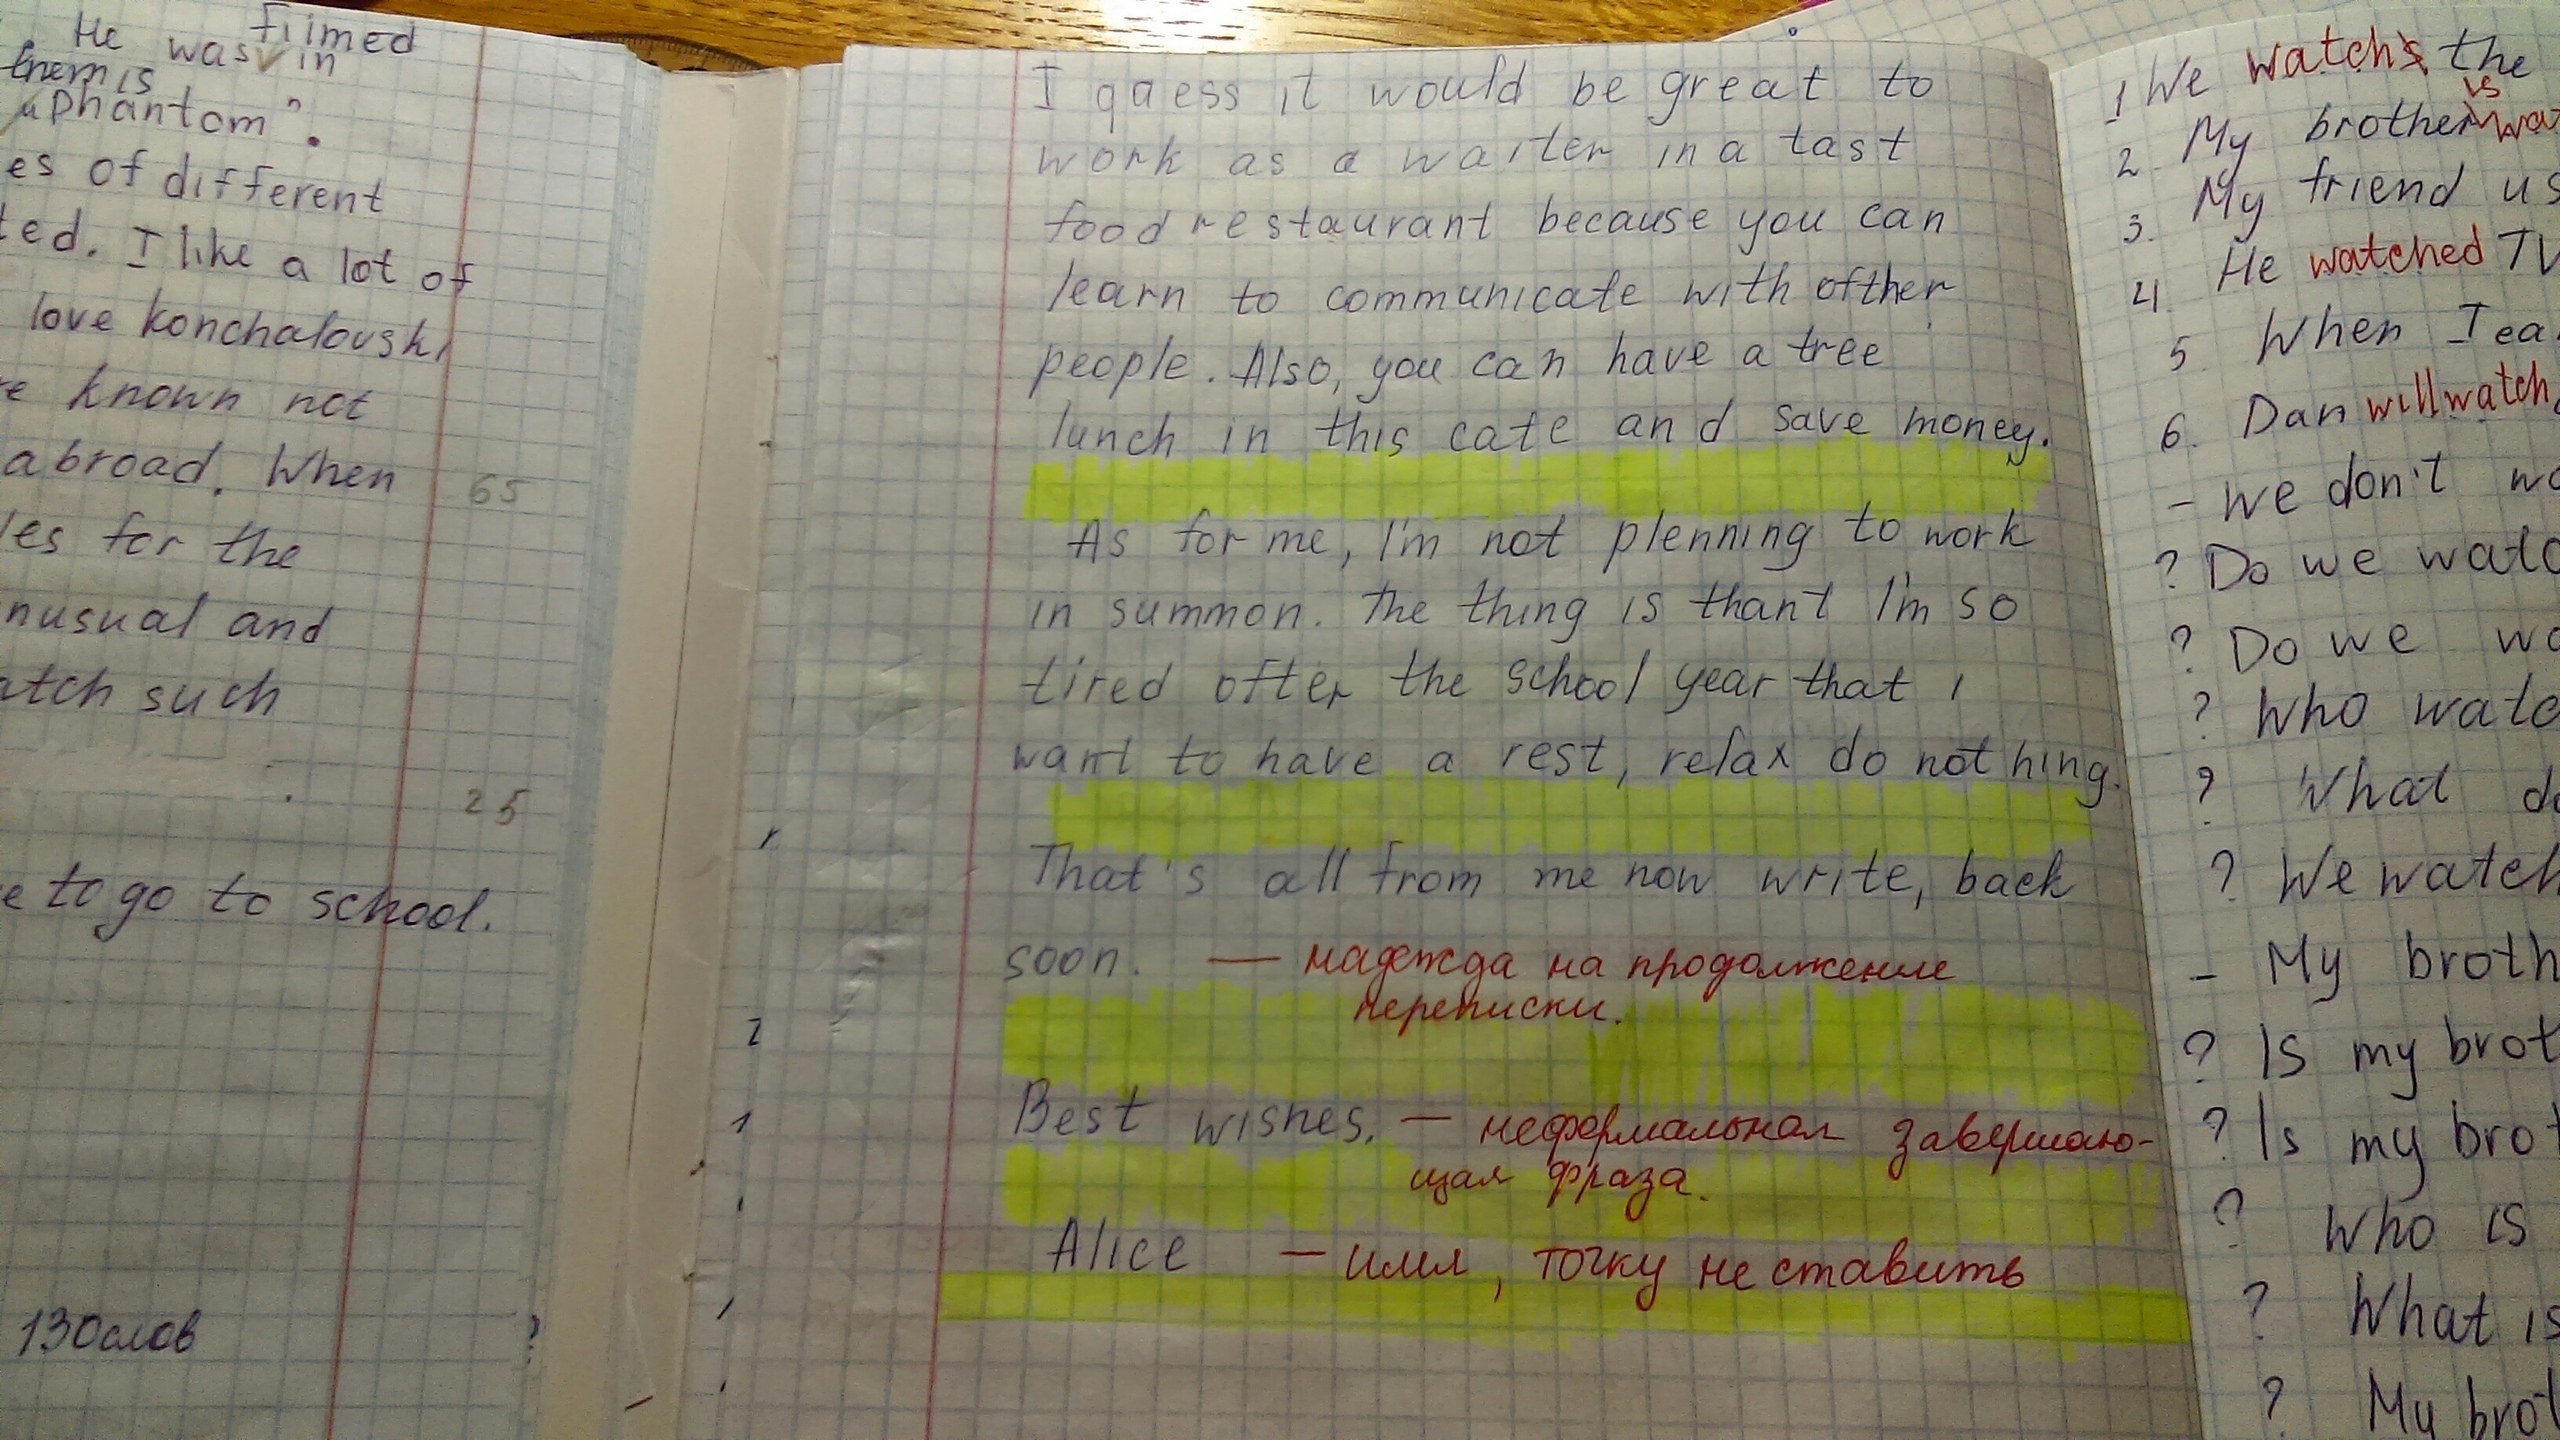 He was filmed in
"Phantom".
es of different
ted. I like a lot of
love konchalovski
e known not
abroad. When 65
les for the
nusual and
atch such
25
e to go to school.
130 слов
I qaess it would be great to
work as a waiter in a tast
food restaurant because you can
learn to communicate with ofther
people. Also, you can have a tree
lunch in this cate and save money.
As for me, I'm not plenning to work
in summon. The thing is thant I'm so
tired ofter the school year that I
want to have a rest, relax do not hing.
That's all from me now write, back
soon. — надежда на продолжение
переписки.
Best wishes, — неформальная завершаю-
щая фраза.
Alice — имя, точку не ставить
1 We watch the
2. My brother is wat
3. My friend us
4 He watched TV
5 When I ea
6. Dan will watch
- We don't wa
? Do we watc
? Do we wa
? Who watc
? What do
? We watch
- My broth
? Is my brot
? Is my brot
? Who is
? What is
? My brot